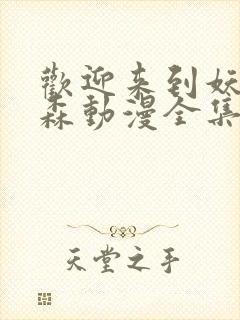 歡迎来到妖
森動漫全集
天堂之手